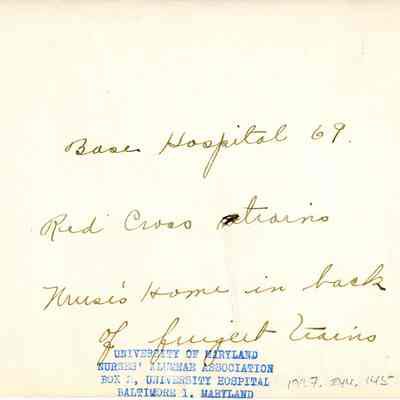 Base Hospital 69.
Red Cross trains
Nurse's Home in back
of freight trains
UNIVERSITY OF MARYLAND
NURSES' ALUMNAE ASSOCIATION
BOX , UNIVERSITY HOSPITAL
BALTIMORE 1, MARYLAND
145